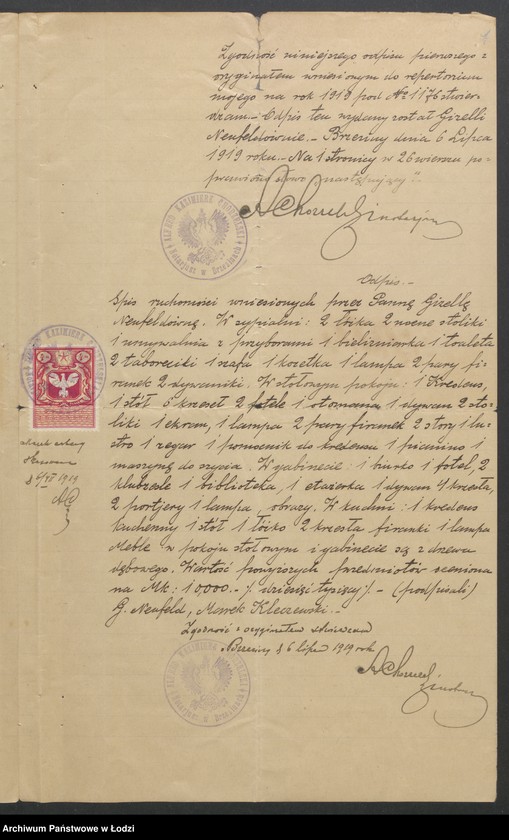 Zgodność niniejszego odpisu pierwszego z
oryginałem wniesionym do repertorium
mojego na rok 1919 pod № 1176 stwier-
dzam.- Odpis ten wydany został Gizelli
Neufeldównie.- Brzeziny dnia 6 Lipca
1919 roku.- Na 1 stronicy w 26 wierszu po-
prawiono słowo
Odpis.-
Spis ruchomości wniesionych przez Pannę Gizellę
Neufeldówną. W sypialni: 2 łóżka 2 nocne stoliki
1 umywalnia z przyborami 1 bieliźniarka 1 toaleta
2 taboreciki 1 szafa 1 kozetka 1 lampa 2 pary fi-
ranek 2 dywaniki. W stołowym pokoju: 1 kredens,
1 stół 6 krzeseł 2 fotele 1 otomana 1 dywan 2 sto-
liki 1 ekran, 1 lampa 2 pary firanek 2 story 1 lu-
stro 1 zegar 1 pomocnik do kredensu 1 pianino 1
maszynę do szycia. W gabinecie: 1 biurko 1 fotel, 2
klubzesle 1 biblioteka, 1 etażerka 1 dywan 4 krzesła
2 portjery 1 lampa, obrazy. W kuchni: 1 kredens
kuchenny 1 stół 1 łóżko 2 krzesła firanki 1 lampa
Meble w pokoju stołowym i gabinecie są z drzewa
dębowego. Wartość powyższych przedmiotów oceniona
na Mk: 10000.- /. dziesięć tysięcy /. - (podpisali)
G. Neufeld, Marek Kleszewski.-
Zgodność z oryginałem stwierdzam
Brzeziny d 6 lipca 1919 rok
1919
Archiwum Państwowe w Łodzi